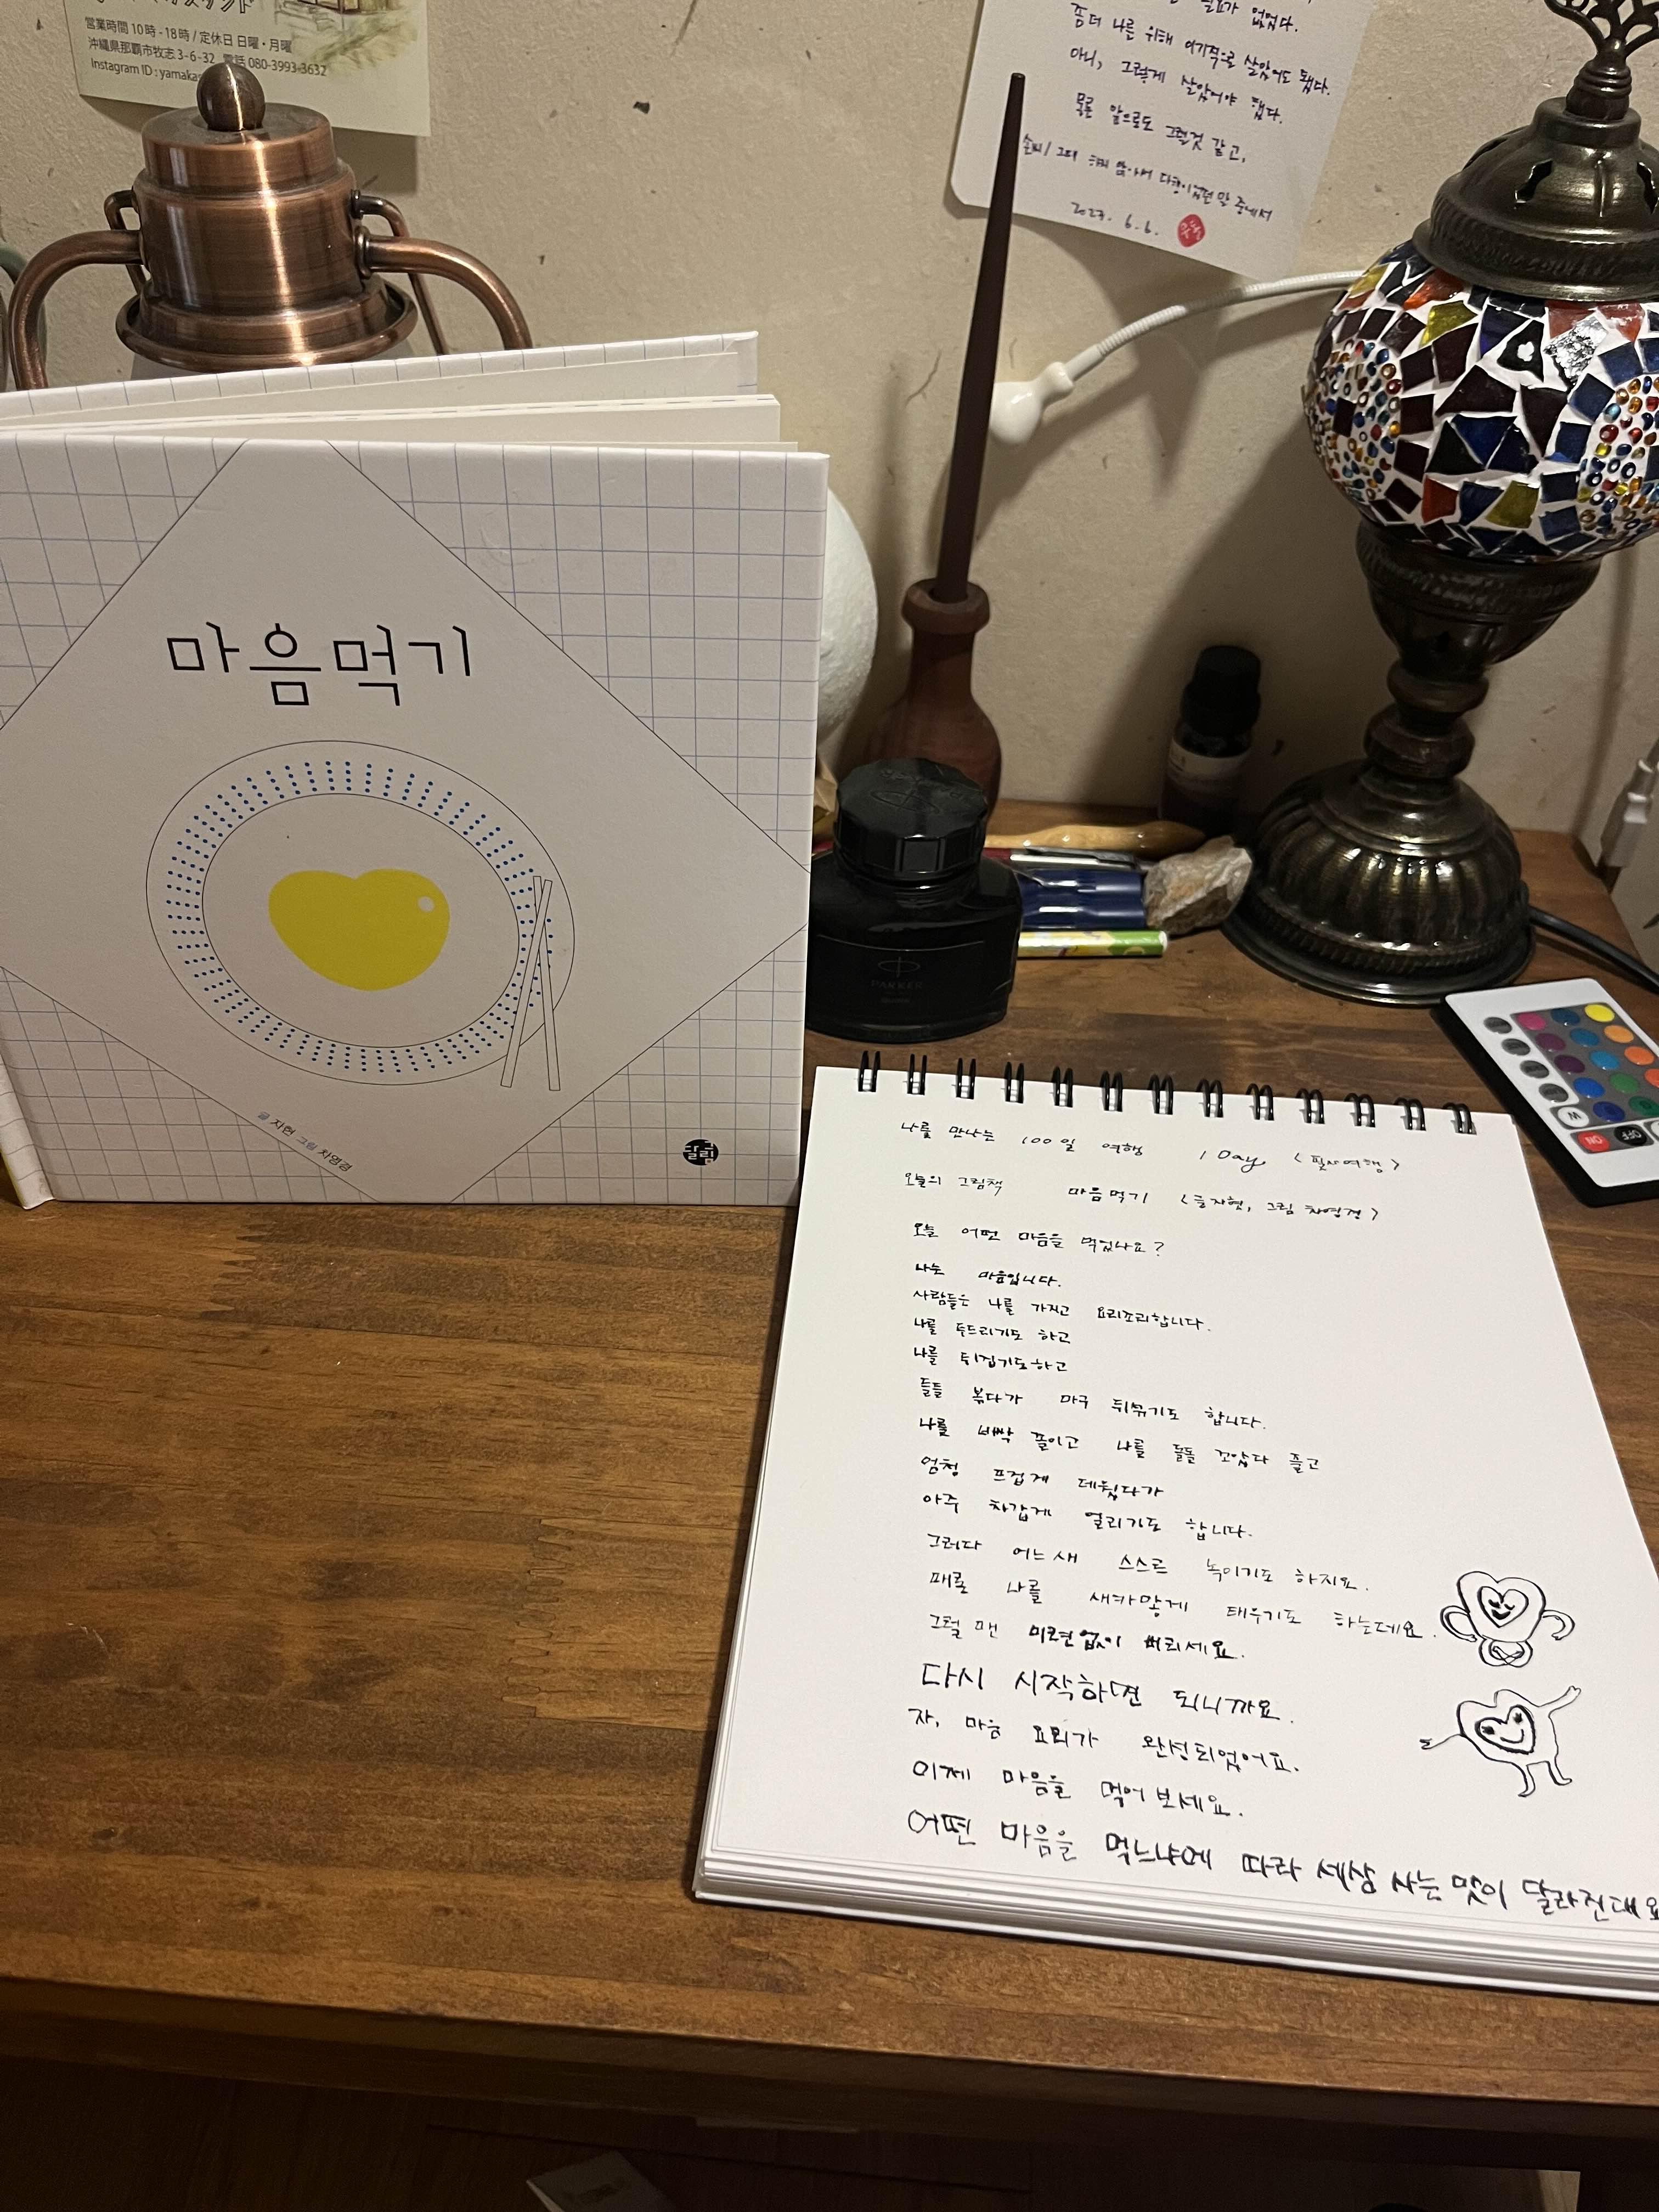 営業時間 10時-18時 / 定休日 日曜・月曜
沖縄県那覇市牧志 3-6-32 電話 080-3993-3632
Instagram ID : yamaka
필요가 없었다.
좀더 나를 위해 이기적으로 살았어도 됐다.
아니, 그렇게 살았어야 했다.
물론 앞으로도 그럴것 같고,
다행이었던 말 중에서
2023. 6. 6.
마음먹기
글 자현 그림 차영경
달그림
PARKER
W
ON
OFF
나를 만나는 100일 여행 1 Day <필사여행>
오늘의 그림책 마음먹기 <글 자현, 그림 차영경>
오늘 어떤 마음을 먹었나요?
나는 마음입니다.
사람들은 나를 가지고 요리조리합니다.
나를 두드리기도 하고
나를 뒤집기도하고
들들 볶다가 마구 뒤섞기도 합니다.
나를 바싹 졸이고 나를 들들 꼬았다 풀고
엄청 뜨겁게 데웠다가
아주 차갑게 얼리기도 합니다.
그러다 어느새 스스르 녹이기도 하지요.
때론 나를 새카맣게 태우기도 하는데요.
그럴 땐 미련없이 버리세요.
다시 시작하면 되니까요.
자, 마음 요리가 완성되었어요.
이제 마음을 먹어 보세요.
어떤 마음을 먹느냐에 따라 세상 사는 맛이 달라진대요